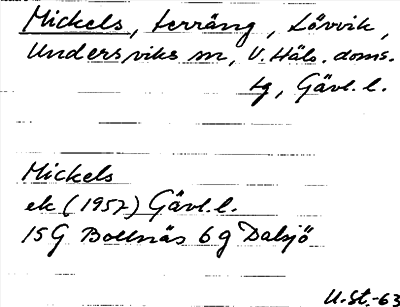 Mickels, terräng, Lövvik,
Undersviks sn, V. Häls. doms.
tg, Gävl. l.
Mickels
ek (1957) Gävl. l.
15G Bollnäs 6g Dalsjö
U.St.-63